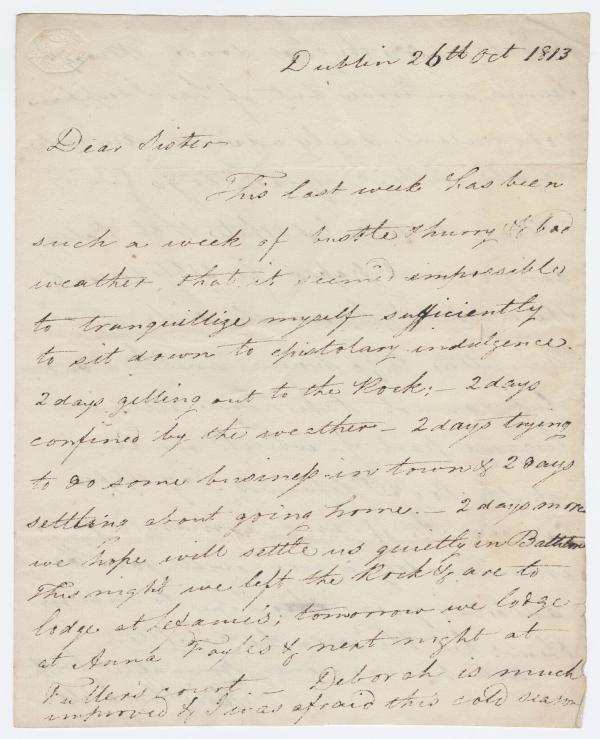 Dublin 26th Oct 1813
Dear Sister
This last week has been
such a week of bustle & hurry & bad
weather, that it seem'd impossible
to tranquillize myself sufficiently
to sit down to epistolary indulgence.
2 days getting out to the Rock; – 2 days
confined by the weather – 2 days trying
to do some business in town & 2 days
settling about going home. – 2 days more
we hope will settle us quietly in
This night we left the Rock & are to
lodge at tomorrow we lodge
at Anna Fayle's & next night at
Fuller's court – Deborah is much
improved & I was afraid this cold season